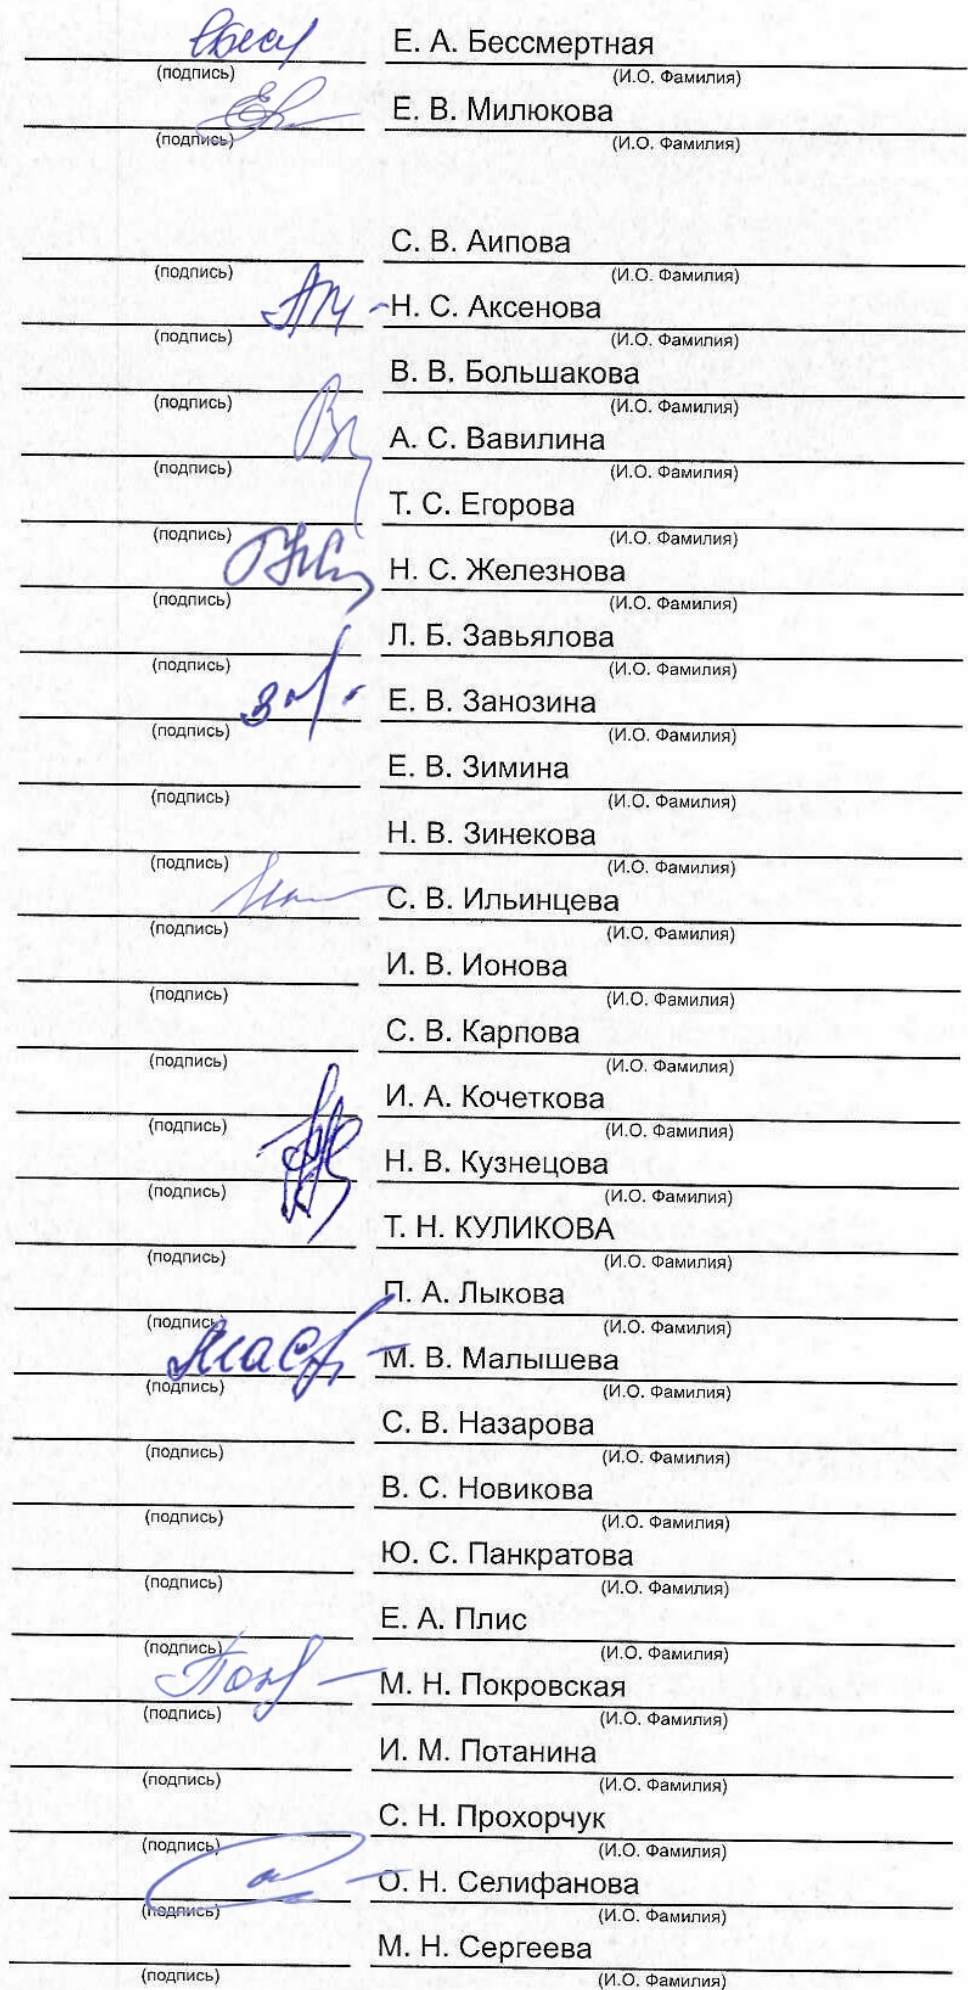 Е. А. Бессмертная
(подпись) (И.О. Фамилия)
Е. В. Милюкова
(подпись) (И.О. Фамилия)
С. В. Аипова
(подпись) (И.О. Фамилия)
Н. С. Аксенова
(подпись) (И.О. Фамилия)
В. В. Большакова
(подпись) (И.О. Фамилия)
А. С. Вавилина
(подпись) (И.О. Фамилия)
Т. С. Егорова
(подпись) (И.О. Фамилия)
Н. С. Железнова
(подпись) (И.О. Фамилия)
Л. Б. Завьялова
(подпись) (И.О. Фамилия)
Е. В. Занозина
(подпись) (И.О. Фамилия)
Е. В. Зимина
(подпись) (И.О. Фамилия)
Н. В. Зинекова
(подпись) (И.О. Фамилия)
С. В. Ильинцева
(подпись) (И.О. Фамилия)
И. В. Ионова
(подпись) (И.О. Фамилия)
С. В. Карпова
(подпись) (И.О. Фамилия)
И. А. Кочеткова
(подпись) (И.О. Фамилия)
Н. В. Кузнецова
(подпись) (И.О. Фамилия)
Т. Н. КУЛИКОВА
(подпись) (И.О. Фамилия)
П. А. Лыкова
(подпись) (И.О. Фамилия)
М. В. Малышева
(подпись) (И.О. Фамилия)
С. В. Назарова
(подпись) (И.О. Фамилия)
В. С. Новикова
(подпись) (И.О. Фамилия)
Ю. С. Панкратова
(подпись) (И.О. Фамилия)
Е. А. Плис
(подпись) (И.О. Фамилия)
М. Н. Покровская
(подпись) (И.О. Фамилия)
И. М. Потанина
(подпись) (И.О. Фамилия)
С. Н. Прохорчук
(подпись) (И.О. Фамилия)
О. Н. Селифанова
(подпись) (И.О. Фамилия)
М. Н. Сергеева
(подпись) (И.О. Фамилия)